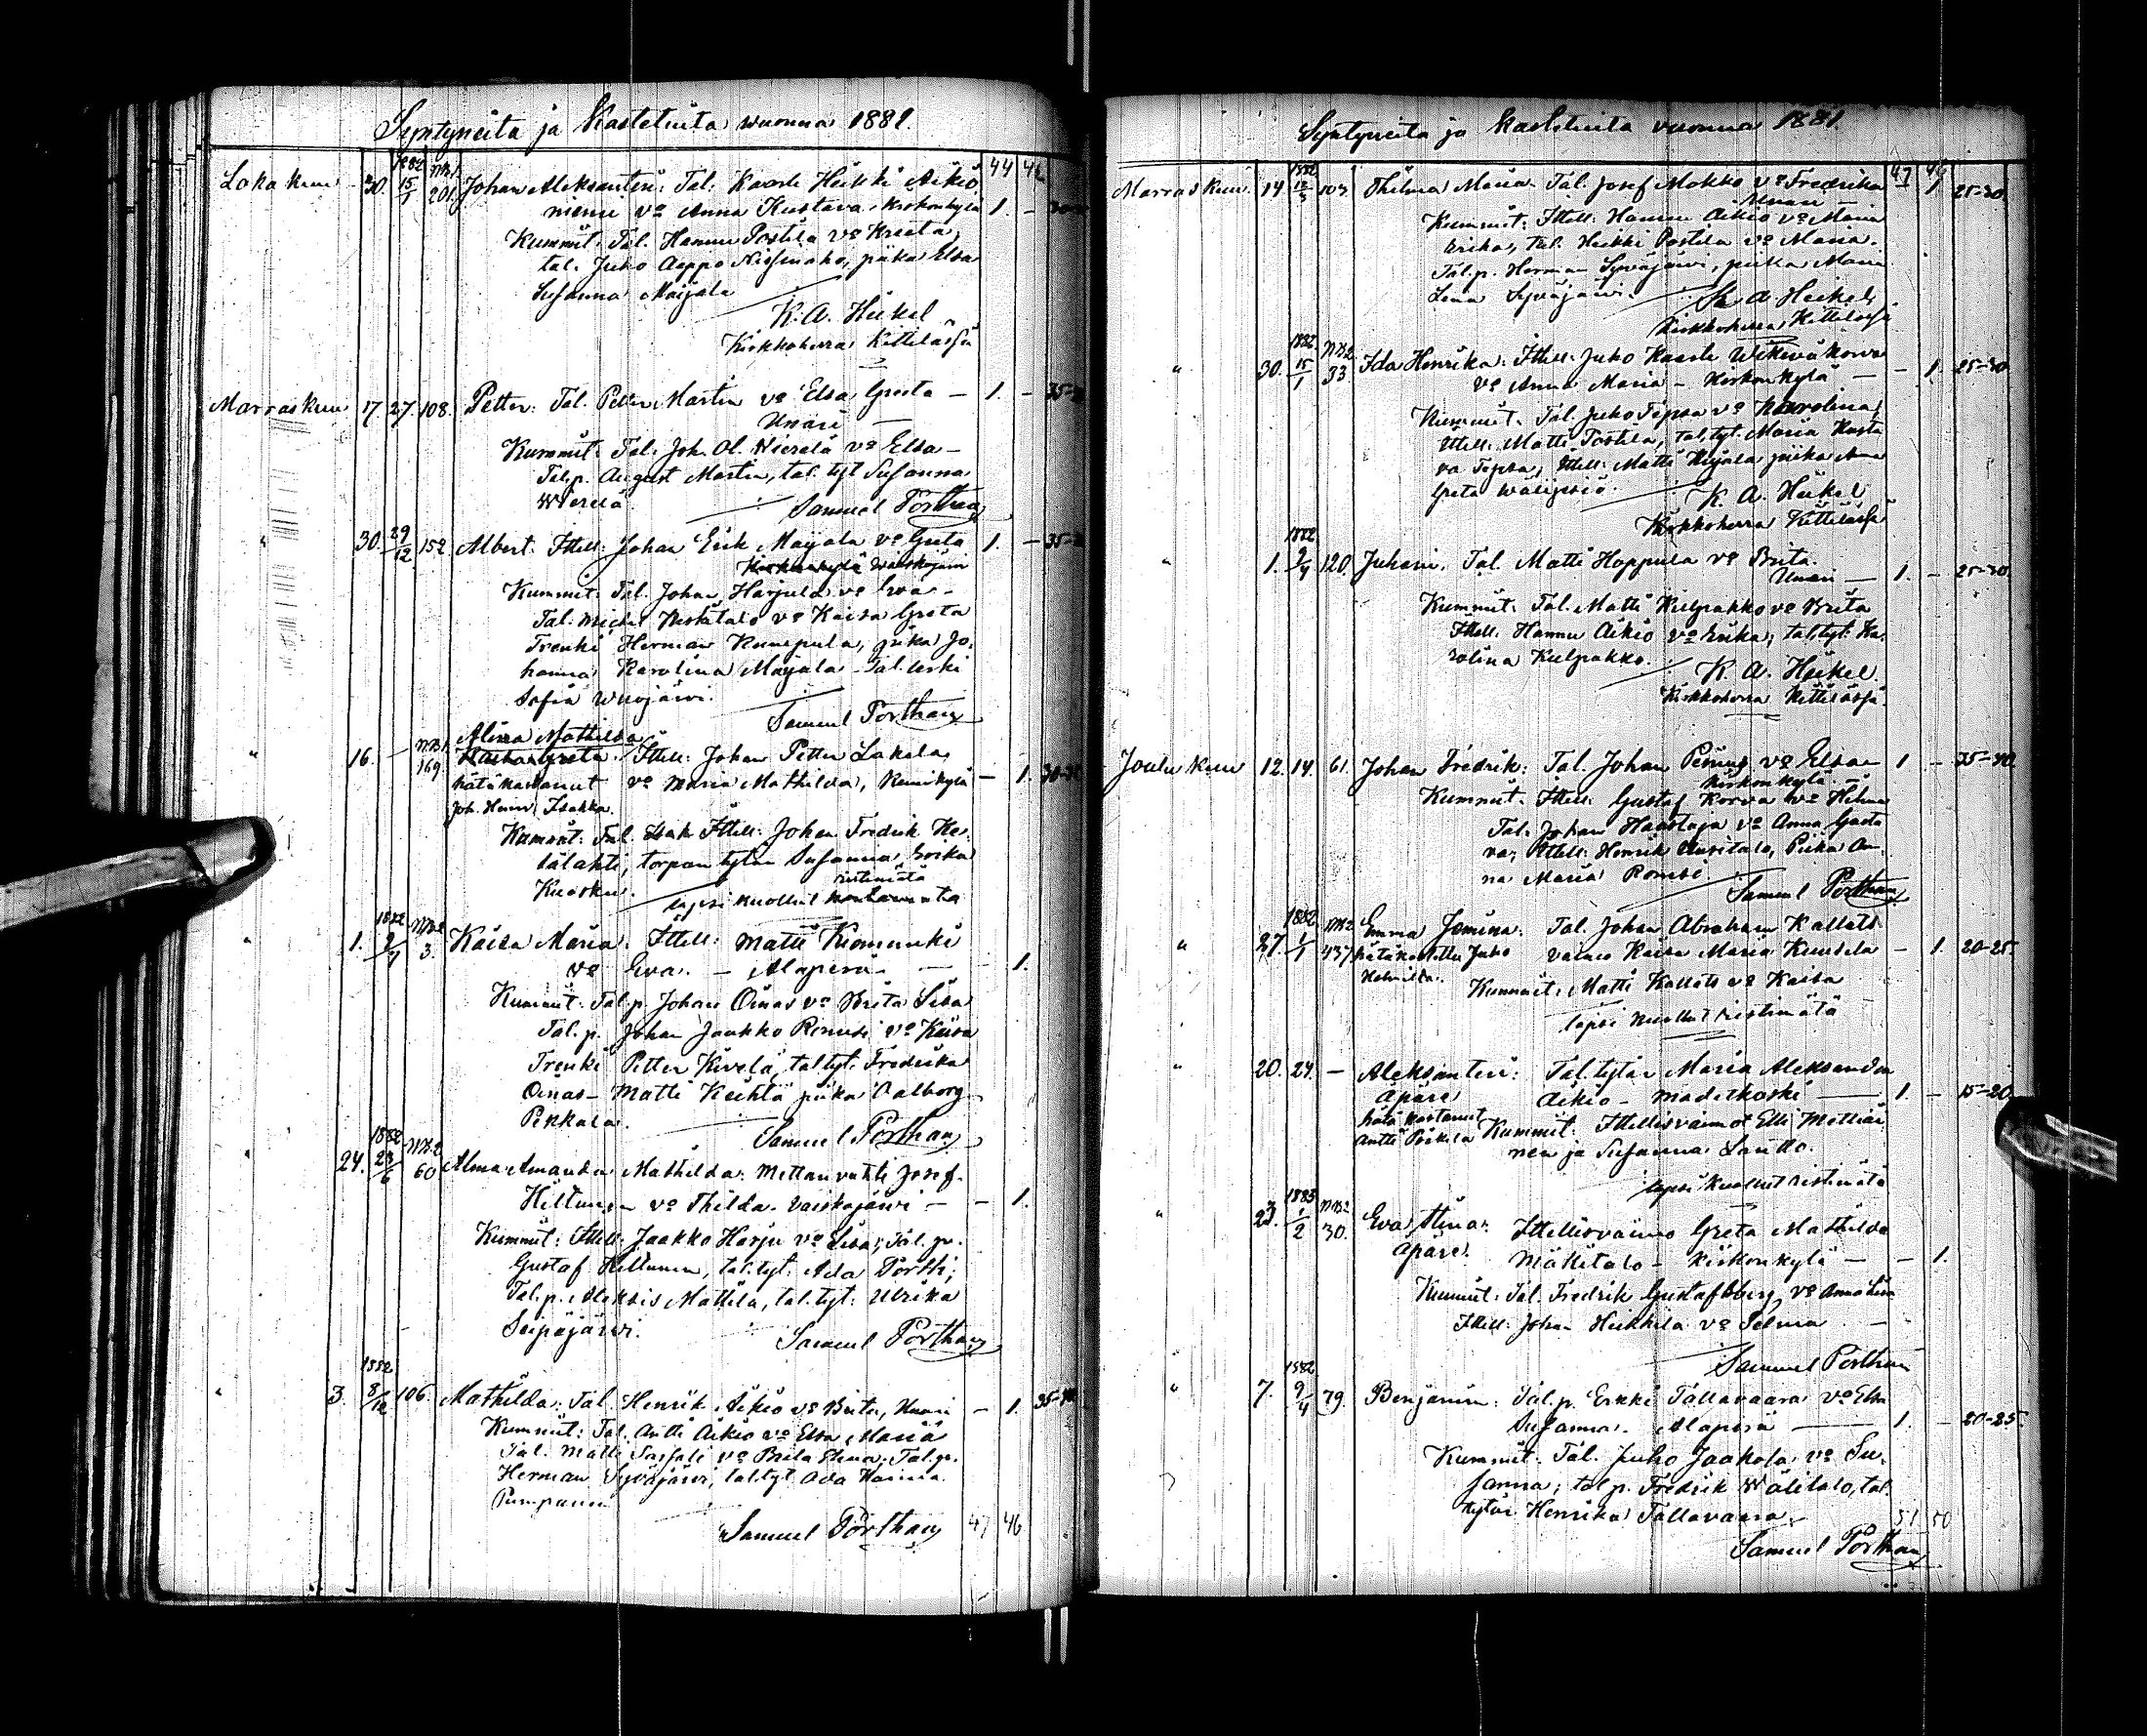 Syntyneitä ja Kastetuita wuonna 1881.
44 42
Lokakuu 30. 1882 15/1 N:B:1. 201. Johan Aleksanteri: Tal: Kaarle Heikki Aikio
niemi vo Anna Kustava, Kirkonkylä 1. –
Kummit: Tal. Hannu Postila vo Kreeta,
tal. Juho Aappo Nissinaho, piika Elsa
Susanna Maijala
K. A. Heikel
Kirkkoherra Kittilässä
Marraskuu 17. 27. 108. Petter: Tal. Petter Martin vo Elsa Greta – 1. –
Unari –
Kummit: Tal. Joh. Ol. Wierelä vo Elsa –
Tal.p. August Martin, tal. tyt Susanna
Wierelä.
Samuel Porthan
" 30. 29/12 152. Albert: Ittell: Johan Erik Maijala vo Greta 1. –
Waiskojärvi
Kummit: Tal. Johan Harjula vo Ewa –
Tal. Mich. vo Kaisa Greta
Trenki Herman Kumpula, piika Jo-
hanna Karolina Maijala – Tal. leski
Sofia Wuojärvi.
Samuel Porthan
Alina Mathilda
" 16. – N:B:1. 169. Ittell: Johan Petter Lakela
hätäkastanut vo Maria Mathilda, Kemikylä – 1.
Joh. Henr. Isakka.
Kummit: Tal. Ittell: Johan Fredrik Kes-
lälahti, torpan tytär Susanna Erika
Kuosku.
lapsi kuollut ristimätä
" 1. 1882 2/7 N:B:2 3. Kaisa Maria: Ittell: Matti Kiomunki
vo Eva. – Alaperä – – 1.
Kummit: Tal.p. Johan Oinas vo Brita Liisa
Tal. p. Johan Jaakko Romsi vo Kaisa
Trenki Petter Kivelä, tal.tyt. Fredrika
Oinas – Matti Kiehtä piika Valborg
Pekkala.
Samuel Porthan
24. 1882 23/6 N:B:2 60 Alma Amanda Mathilda: Mettänvahti Josef
Hiltunen vo Thilda. Vaiskojärvi – – 1.
Kummit: Ittell: Jaakko Harju vo Liisa; Tal. p.
Gustaf Hiltunen, tal.tyt. Ada Porthi;
Tal.p. Aleksis Mattila, tal.tyt: Ulrika
Seipäjärvi.
Samuel Porthan
" 3. 1882 8/12 106. Mathilda: Tal. Henrik Aikio vo Brita, Unari – 1.
Kummit: Tal. Antti Aikio vo Elsa Maria
Tal. Matti Sassali vo Brita Elina, Tal.p.
Herman Syväjärvi, tal.tyt Ada Hannia
Pumpanen
Samuel Porthan 47 46
Syntyneitä ja kastetuita vuonna 1881.
47 46
Marraskuu. 14. 1882 12/3 107. Thilma Maria. Tal. Josef Mokko vo Fredrika – 1. 25-30.
Unari –
Kummit: Ittell: Hannu Aikio vo Maria
Erika, tal. Heikki Postila vo Maria.
Tal.p. Herman Syväjärvi, piika Maria
Lena Syväjärvi.
K. A. Heikel,
Kirkkoherra Kittilässä
" 30. 1882 15/1 N:B:2 33 Ida Henrika: Ittell: Juho Kaarle
vo Anna Maria – Kirkonkylä – – 1. 25-30
Kummit: Tal. Juho Tepsa vo Karolina,
Ittell: Matti Postila, tal.tyt. Maria Kusta
va Tepsa, Ittell: Matti Keijala piika Ana
Greta Wälijesiö.
K. A. Heikel
Kirkkoherra Kittilässä
" 1. 1882 2/4 120. Juhani. Tal. Matti Hoppula vo Brita.
Unari – 1. – 25-30.
Kummit: Tal. Matti Kulpakko vo Brita
Ittell: Hannu Aikio vo Erika, tal.tyt. Ka-
rolina Kulpakko.
K. A. Heikel.
Kirkkoherra Kittilässä.
Joulukuu 12. 14. 61. Johan Fredrik: Tal. Johan Peining vo Elsa – 1 – 35-40
Kirkonkylä –
Kummit: Ittell: Gustaf Korva vo Hilma
Tal. Johan Haastaja vo Anna Gusta
va, Ittell: Henrik Uusitalo, Piika An-
na Maria Romsi.
Samuel Porthan
" 27. 1882 1/1 N:B:2 137 Emma Jemina: Tal. Johan Abraham Kallats
hätäkastettu Juho vaimo Kaisa Maria Kuusela – 1. 20-25.
Kummit: Matti Kallats vo Kaisa
lapsi kuollut ristimätä
" 20. 24. – Aleksanteri: Tal.tytär Maria Aleksandra
äpärä Aikio – Madetkoski – 1. – 15-20.
hätäkastanut
Antti Poikela Kummit: Ittellisvaimot Elli Mattiai-
nen ja Susanna Lantto.
lapsi kuollut ristimätä
" 1883 1/2 N:B:2 30. Eva Stina: Ittellisvaimo Greta Mathilda
äpärä. Mäkitalo – Kirkonkylä – – 1.
Kummit: Tal. Fredrik Gustafsberg vo Anna Lisa
Ittell: Johan Heikkilä vo Selma. –
Samuel Porthan
" 7. 1882 9/4 79. Benjamin: Tal.p. Erkki Tallavaara vo Elsa
Susanna. Alaperä – 1. – 20-25.
Kummit. Tal. Juho Jaakola vo Su-
sanna; tal p. Fredrik Wälitalo, tal.
tytär Henrika Tallavaara. –
51 50
Samuel Porthan